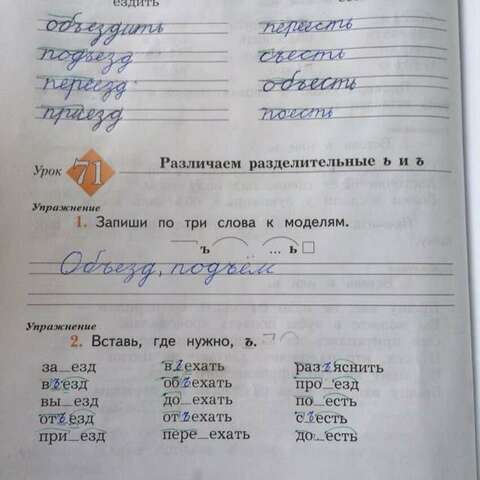 ездить
объездить переесть
подъезд съесть
переезд объесть
приезд поесть
Урок 71 Различаем разделительные ь и ъ
Упражнение
1. Запиши по три слова к моделям.
ъ ... ь
Объезд, подъём
Упражнение
2. Вставь, где нужно, ъ.
за_езд въехать разъяснить
въезд объехать про_езд
вы_езд до_ехать по_есть
отъезд отъехать съесть
при_езд пере_ехать до_есть